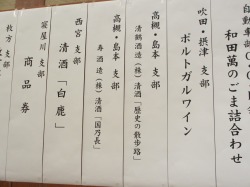 和田萬のごま詰合わせ
吹田・摂津 支部
ポルトガルワイン
高槻・島本 支部
清鶴酒造(株)清酒「歴史の散歩路」
高槻・島本 支部
寿酒造(株)清酒「国乃長」
西宮 支部
清酒「白鹿」
寝屋川 支部
商品券
枚方 支部